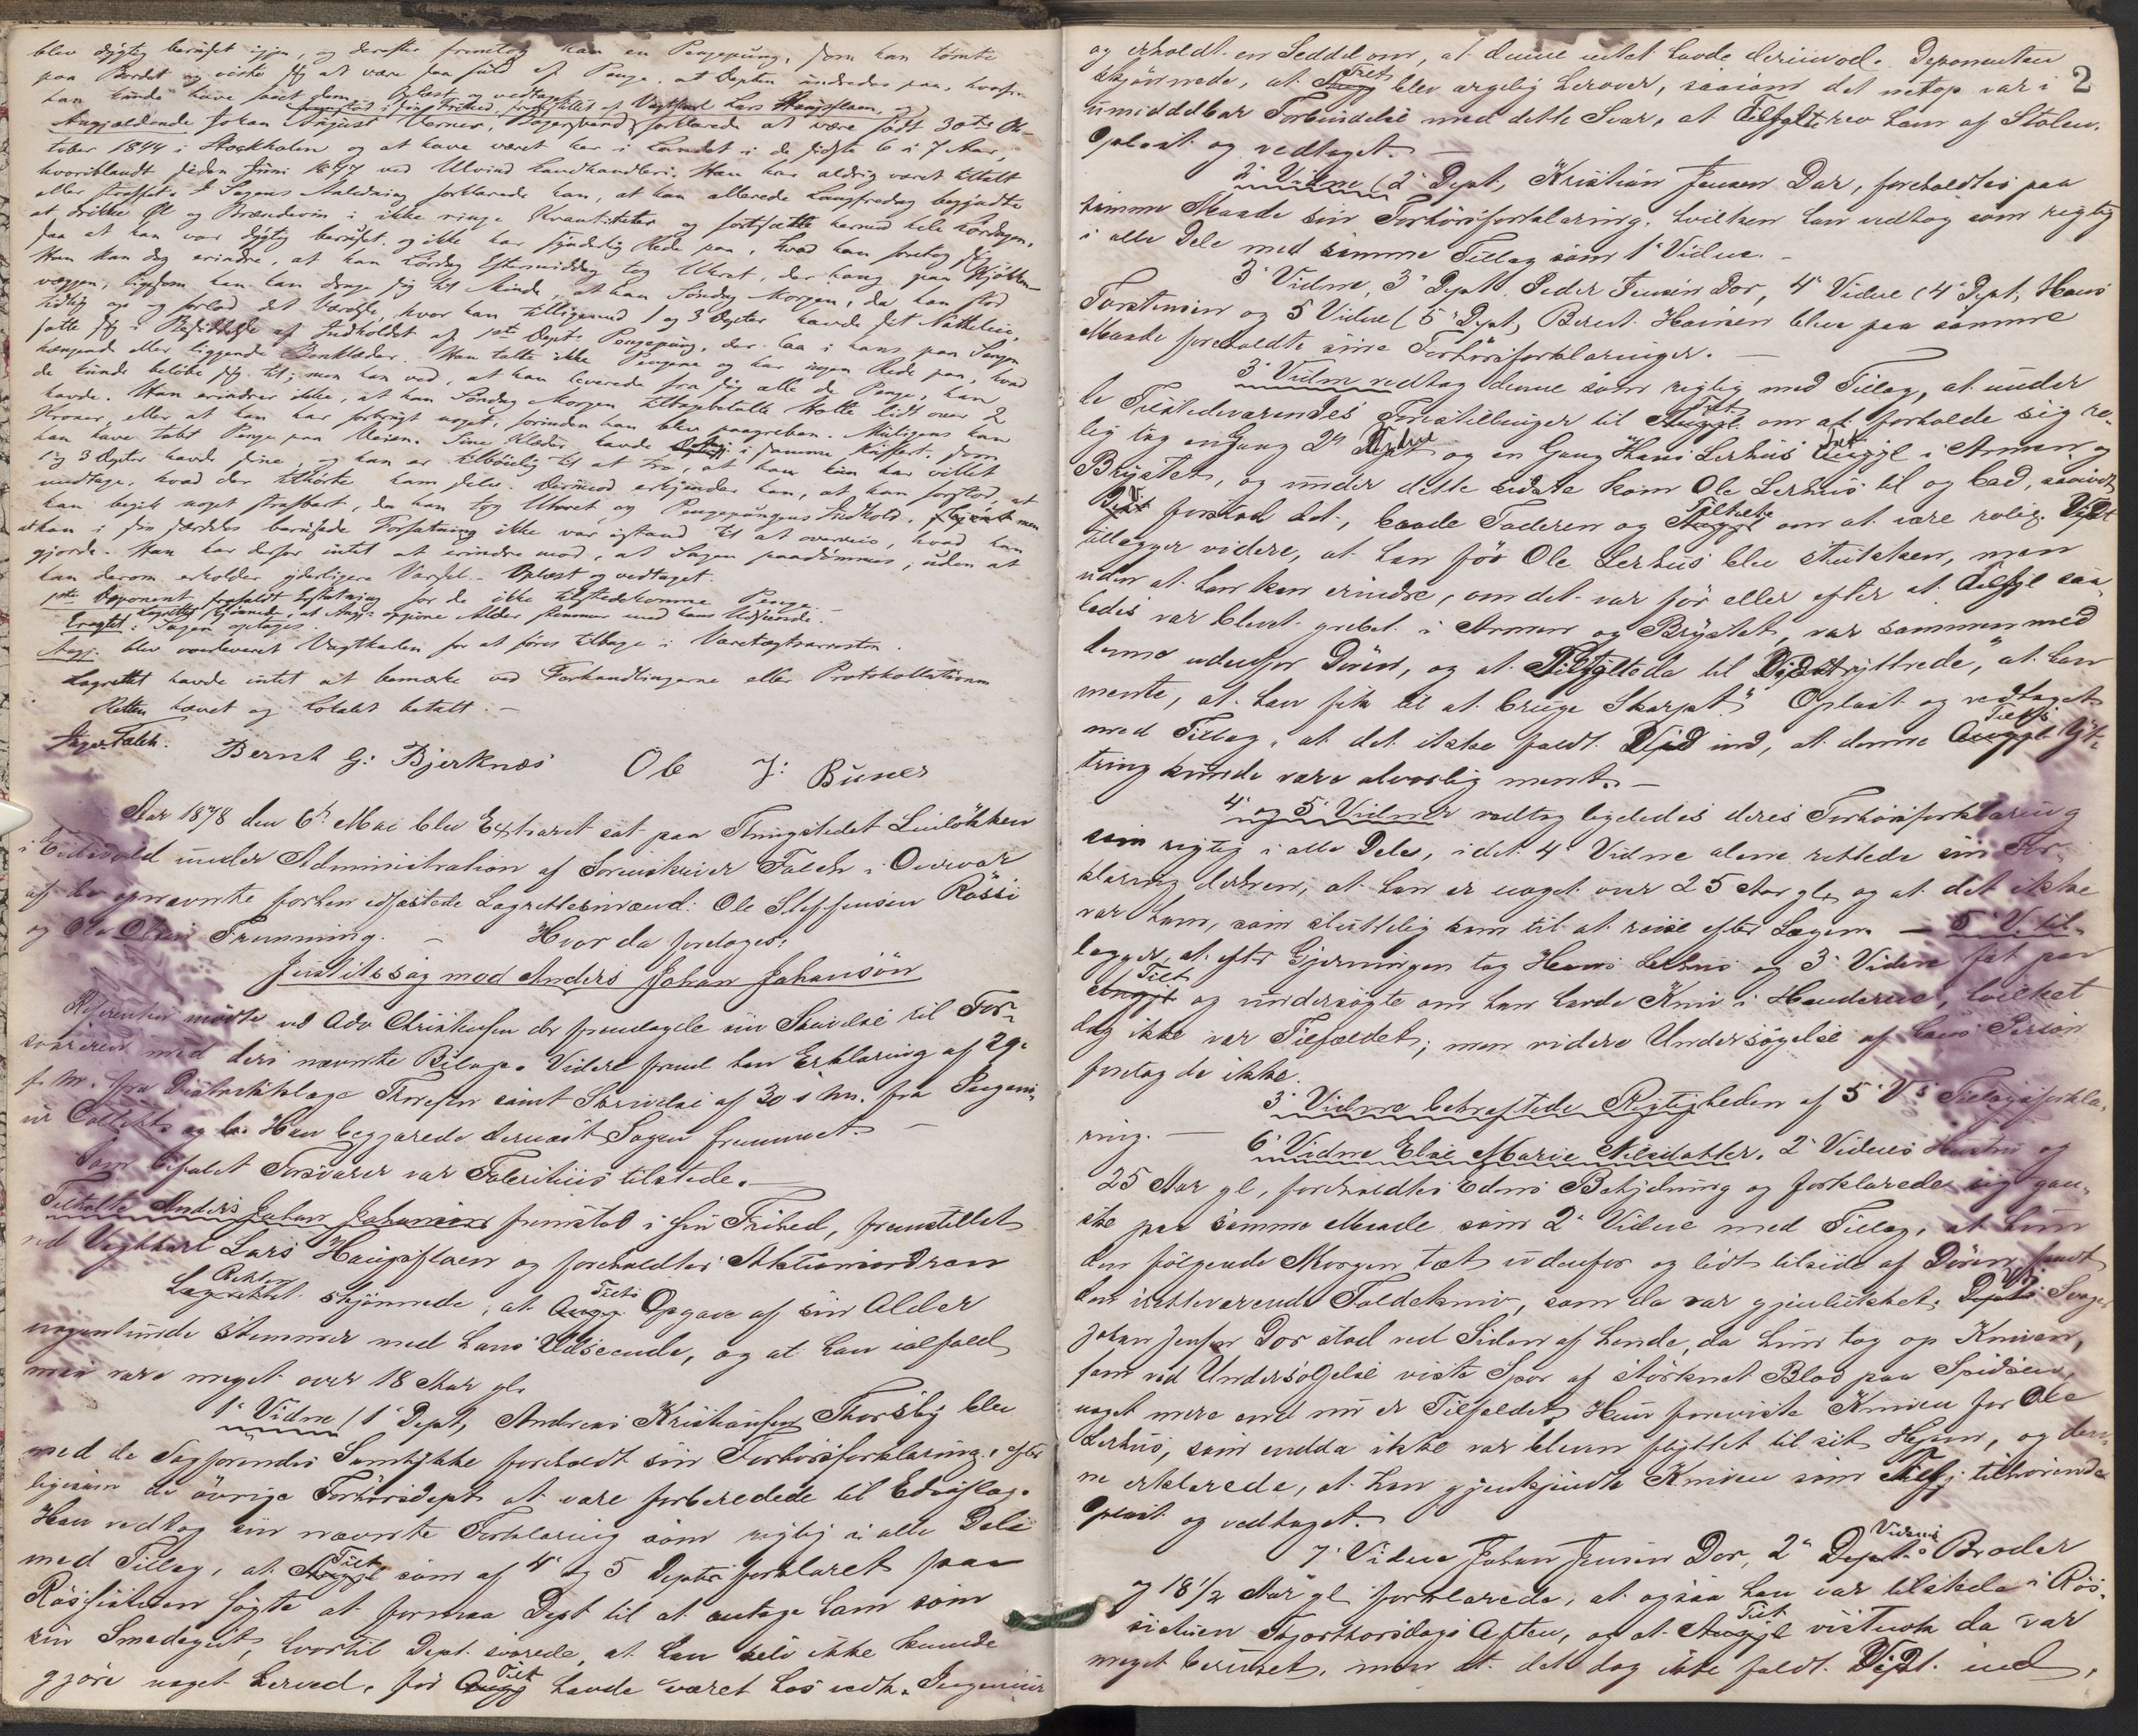 blev dygtig beruset igjen, og derefter fremtog han en Pengepung, som han tømte
paa Bordet og viste sig at være saa fuld af Penge, at Depten undredes paa, hvorfra
han kunde have faaet dem. Oplæst og vedtaget.
fremstod i sin Frihed, fremstillet af Vagtkarl Lars Haugsflaen, og
Angjældende Johan August Verner, Bogersvand, forklarede at være født 30te Ok-
tober 1844 i Stockholm og at have været her i Landet i de sidste 6 à 7 Aar,
hvoriblandt siden Juni 1877 ved Ulvind Landhandleri. Han har aldrig været tiltalt
eller straffet. I Sagens Anledning forklarede han, at han allerede Langfredag begyndte
at drikke Øl og Brændevin i ikke ringe Kvantiteter og fortsatte hermed hele Lørdagen,
saa at han var dygtig beruset og ikke har synderlig Rede paa, hvad han foretog sig.
Han kan dog erindre, at han Lørdag Eftermiddag tog Uhret, der hang paa Kjøkken-
væggen, ligesom han kan drage sig til Minde, at han Søndag Morgen, da han stod
tidlig op og forlod det Værelse, hvor han tilligemed 1 og 3 Depter havde sit Natteleie,
satte sig i Besiddelse af Indholdet af 1ste Depts Pengepung, der laa i hans paa Sengen
hængende eller liggende Benklæder. Han talte ikke Pengene og har ingen Rede paa, hvad
de kunde beløbe sig til; men han ved, at han leverede fra sig alle de Penge, han
havde. Han erindrer ikke, at han Søndag Morgen tilbagebetalte Hotte lidt over 2
Kroner, eller at han har forbrugt noget, forinden han blev paagreben. Muligens kan
han have tabt Penge paa Veien. Sine Klæder havde Angj. i samme Kuffert, som
1 og 3 Depter havde sine, og han er tilbøielig til at tro, at han kun har villet
medtage, hvad der tilhørte ham selv. Derimod erkjender han, at han forstod, at
han begik noget strafbart, da han tog Uhret og Pengepungens Indhold, men
at han i sin særdeles berusede Forfatning ikke var istand til at overveie, hvad han
gjorde. Han har derfor intet at erindre mod, at Sagen paadømmes, uden at
han derom erholder yderligere Varsel. – Oplæst og vedtaget.
1ste Deponent frafaldt Erstatning for de ikke tilstedekomne Penge.
Lagrettet skjønnede, at Angj: opgivne Alder stemmer med hans Udseende.
Eragtet: Sagen optages.
Angj. blev overleveret Vagtkarlen for at føres tilbage i Varetægtsarresten.
Lagrettet havde intet at bemærke ved Forhandlingerne eller Protokollationen
Retten hævet og Lokalet betalt. –
Falch. Bernt G: Bjerknæs Ole J: Buner
Aar 1878 den 6te Mai blev Extraret sat paa Thingstedet Linløkken
i Eidsvold under Administration af Sorenskriver Falch i Overvær
af de opnævnte forhen edfæstede Lagrettesmænd: Ole Steffensen Røssi
og Ole Olsen Trunning. – Hvor da foretoges:
Justitssag mod Anders Johan Johansøn
Referenten mødte ved Adv Christensen der fremlagde sin Skrivelse til For-
svareren med deri nævnte Bilage. Videre fremlaa Erklæring af 29.
f. M. fra Distriktslæge Thoresen samt Skrivelse af 30 s. M. fra Ingeni-
ør Collett og la. Han begjærede dernæst Sagen fremmet. –
Som befalet Forsvarer var Falsenius tilstede. –
Tiltalte Anders Johan Johansen fremstod i sin Frihed, fremstillet
ved Vagtkarl Lars Haugsflaen og foreholdtes Aktionsordren
Retten
Lagrettet skjønnede, at Angj. Tilts Opgave af sin Alder
nogenlunde stemmer med hans Udseende, og at han ialfald
maa være meget over 18 Aar gl.
1' Vidne (1' Dept, Andreas Kristiansen Thorsby blev
med de Sagførendes Samtykke foreholdt sin Forhørsforklaring, efter
ligesom de øvrige Forhørsdept at være forberedede til Edsaflæg.
Han vedtog sin nævnte Forklaring som rigtig i alle Dele
med Tillæg, at Angjl Tilt som af 4' og 5 Depter forklaret paa
Røssistuen søgte at formaa Dept til at antage ham som
sin Smedegut, hvortil Dept. svarede, at han selv ikke kunde
gjøre noget herved, før Angj Tilt havde været hos vedk. Ingeniør
2
og erholdt en Seddel om, at denne intet havde derimod. Deponenten
skjønnede, at Angj Tilt blev ærgelig herover, saasom det netop var i
umiddelbar Forbindelse med dette Svar, at Tiltalte rev ham af Stolen.
Oplæst og vedtaget. –
2' Vidne (2' Dept, Kristian Jensen Dor, foreholdtes paa
samme Maade sin Forhørsforklaring, hvilken han vedtog som rigtig
i alle Dele med samme Tillæg som 1' Vidne. –
3' Vidne, 3' Dept. Peder Jensen Dor, 4' Vidne (4' Dept, Hans
Torstensen og 5 Vidne (5' Dept, Bernt Hansen blev paa samme
Maade foreholdte sine Forhørsforklaringer. –
3' Vidne vedtog denne som rigtig med Tillæg, at under
de Tilstedeværendes Forestillinger til Angjl. Tilt. om at forholde sig ro-
lig tog en Gang 2' Vidne og en Gang Hans Lerhus Angjl Tilt i Armen og
Brystet, og under dette sidste kom Ole Lerhus til og bad, saavidt
Dept V. forstod det, baade Faderen og Angjl Tiltalte om at være rolig. Vidnet
tillægger videre, at han før Ole Lerhus blev stukken, men
uden at han kan erindre, om det var før eller efter at Tilt saa-
ledes var blevet grebet i Armen og Brystet, var sammen med
denne udenfor Døren, og at Tiltalte da til Vidnet yttrede, "at han
mente, at han fik til at bruge Skarpt." Oplæst og vedtaget
med Tillæg, at det ikke faldt Vid ind, at denne Angjl Tiltts Yt-
tring kunde være alvorlig ment. –
4' og 5' Vidner vedtog ligeledes deres Forhørsforklaring
som rigtig i alle Dele, idet 4' Vidne alene rettede sin For-
klaring derhen, at han er noget over 25 Aar gl. og at det ikke
var ham, som sluttelig kom til at reise efter Lægen. – 5' V. til-
lægger, at efter Gjerningen tog Hans Lerhus og 3' Vidne fat paa
Angjl Tilt og undersøgte om han havde Kniv i Hænderne, hvilket
dog ikke var Tilfældet; men videre Undersøgelse af hans Person
foretog de ikke.
3' Vidne bekræftede Rigtigheden af 5' V's Tillægsforkla-
ring. –
6' Vidne Else Marie Nilsdatter, 2' Vidnes Hustru og
25 Aar gl, foreholdtes Edens Betydning og forklarede sig gan-
ske paa samme Maade som 2' Vidne med Tillæg, at hun
den følgende Morgen tæt udenfor og lidt tilside af Døren fandt
den isetteværende Foldekniv, som da var gjenlukket. Depts V's Svoger
Johan Jensen Dor stod ved Siden af hende, da hun tog op Kniven,
som ved Undersøgelse viste Spor af størknet Blod paa Spidsen,
noget mere end nu er Tilfældet. Hun foreviste Kniven for Ole
Lerhus, som endda ikke var bleven flyttet til sit Hjem, og den-
ne erklærede, at han gjenkjendte Kniven som Tilt. tilhørende.
Oplæst og vedtaget.
7' Vidne Johan Jensen Dor, 2' Depts Vidnes Broder
og 18 1/2 Aar gl forklarede, at ogsaa han var tilstede i Røs-
sistuen Skjærthorsdags Aften, og at Angjl Tilt vistnok da var
meget beruset, men at det dog ikke faldt Vidt. ind,